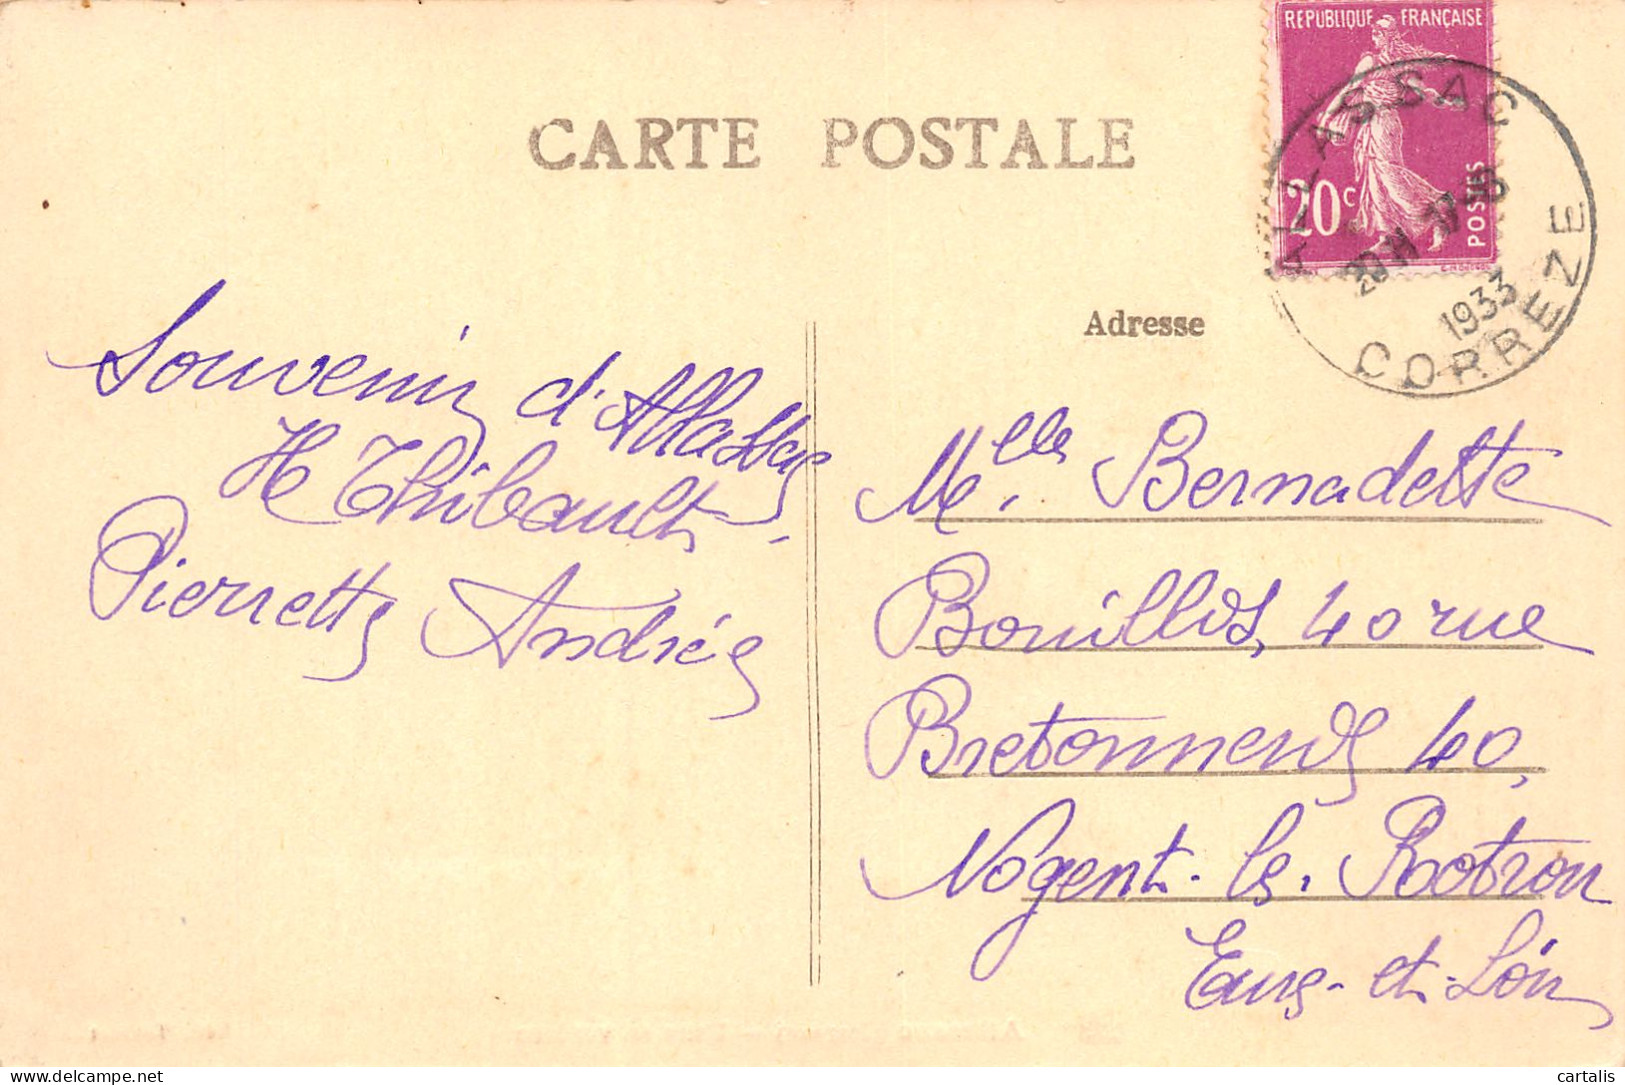 CARTE POSTALE
REPUBLIQUE FRANÇAISE
20c
POSTES
ALLASSAC
1933
CORREZE
Adresse
Souvenir d'Allassac
H Thibault
Pierrette Andrée
Melle. Bernadette
40 rue
Bretonnerie 40,
Nogent-le-Rotrou
Eure-et-Loir
cartalis